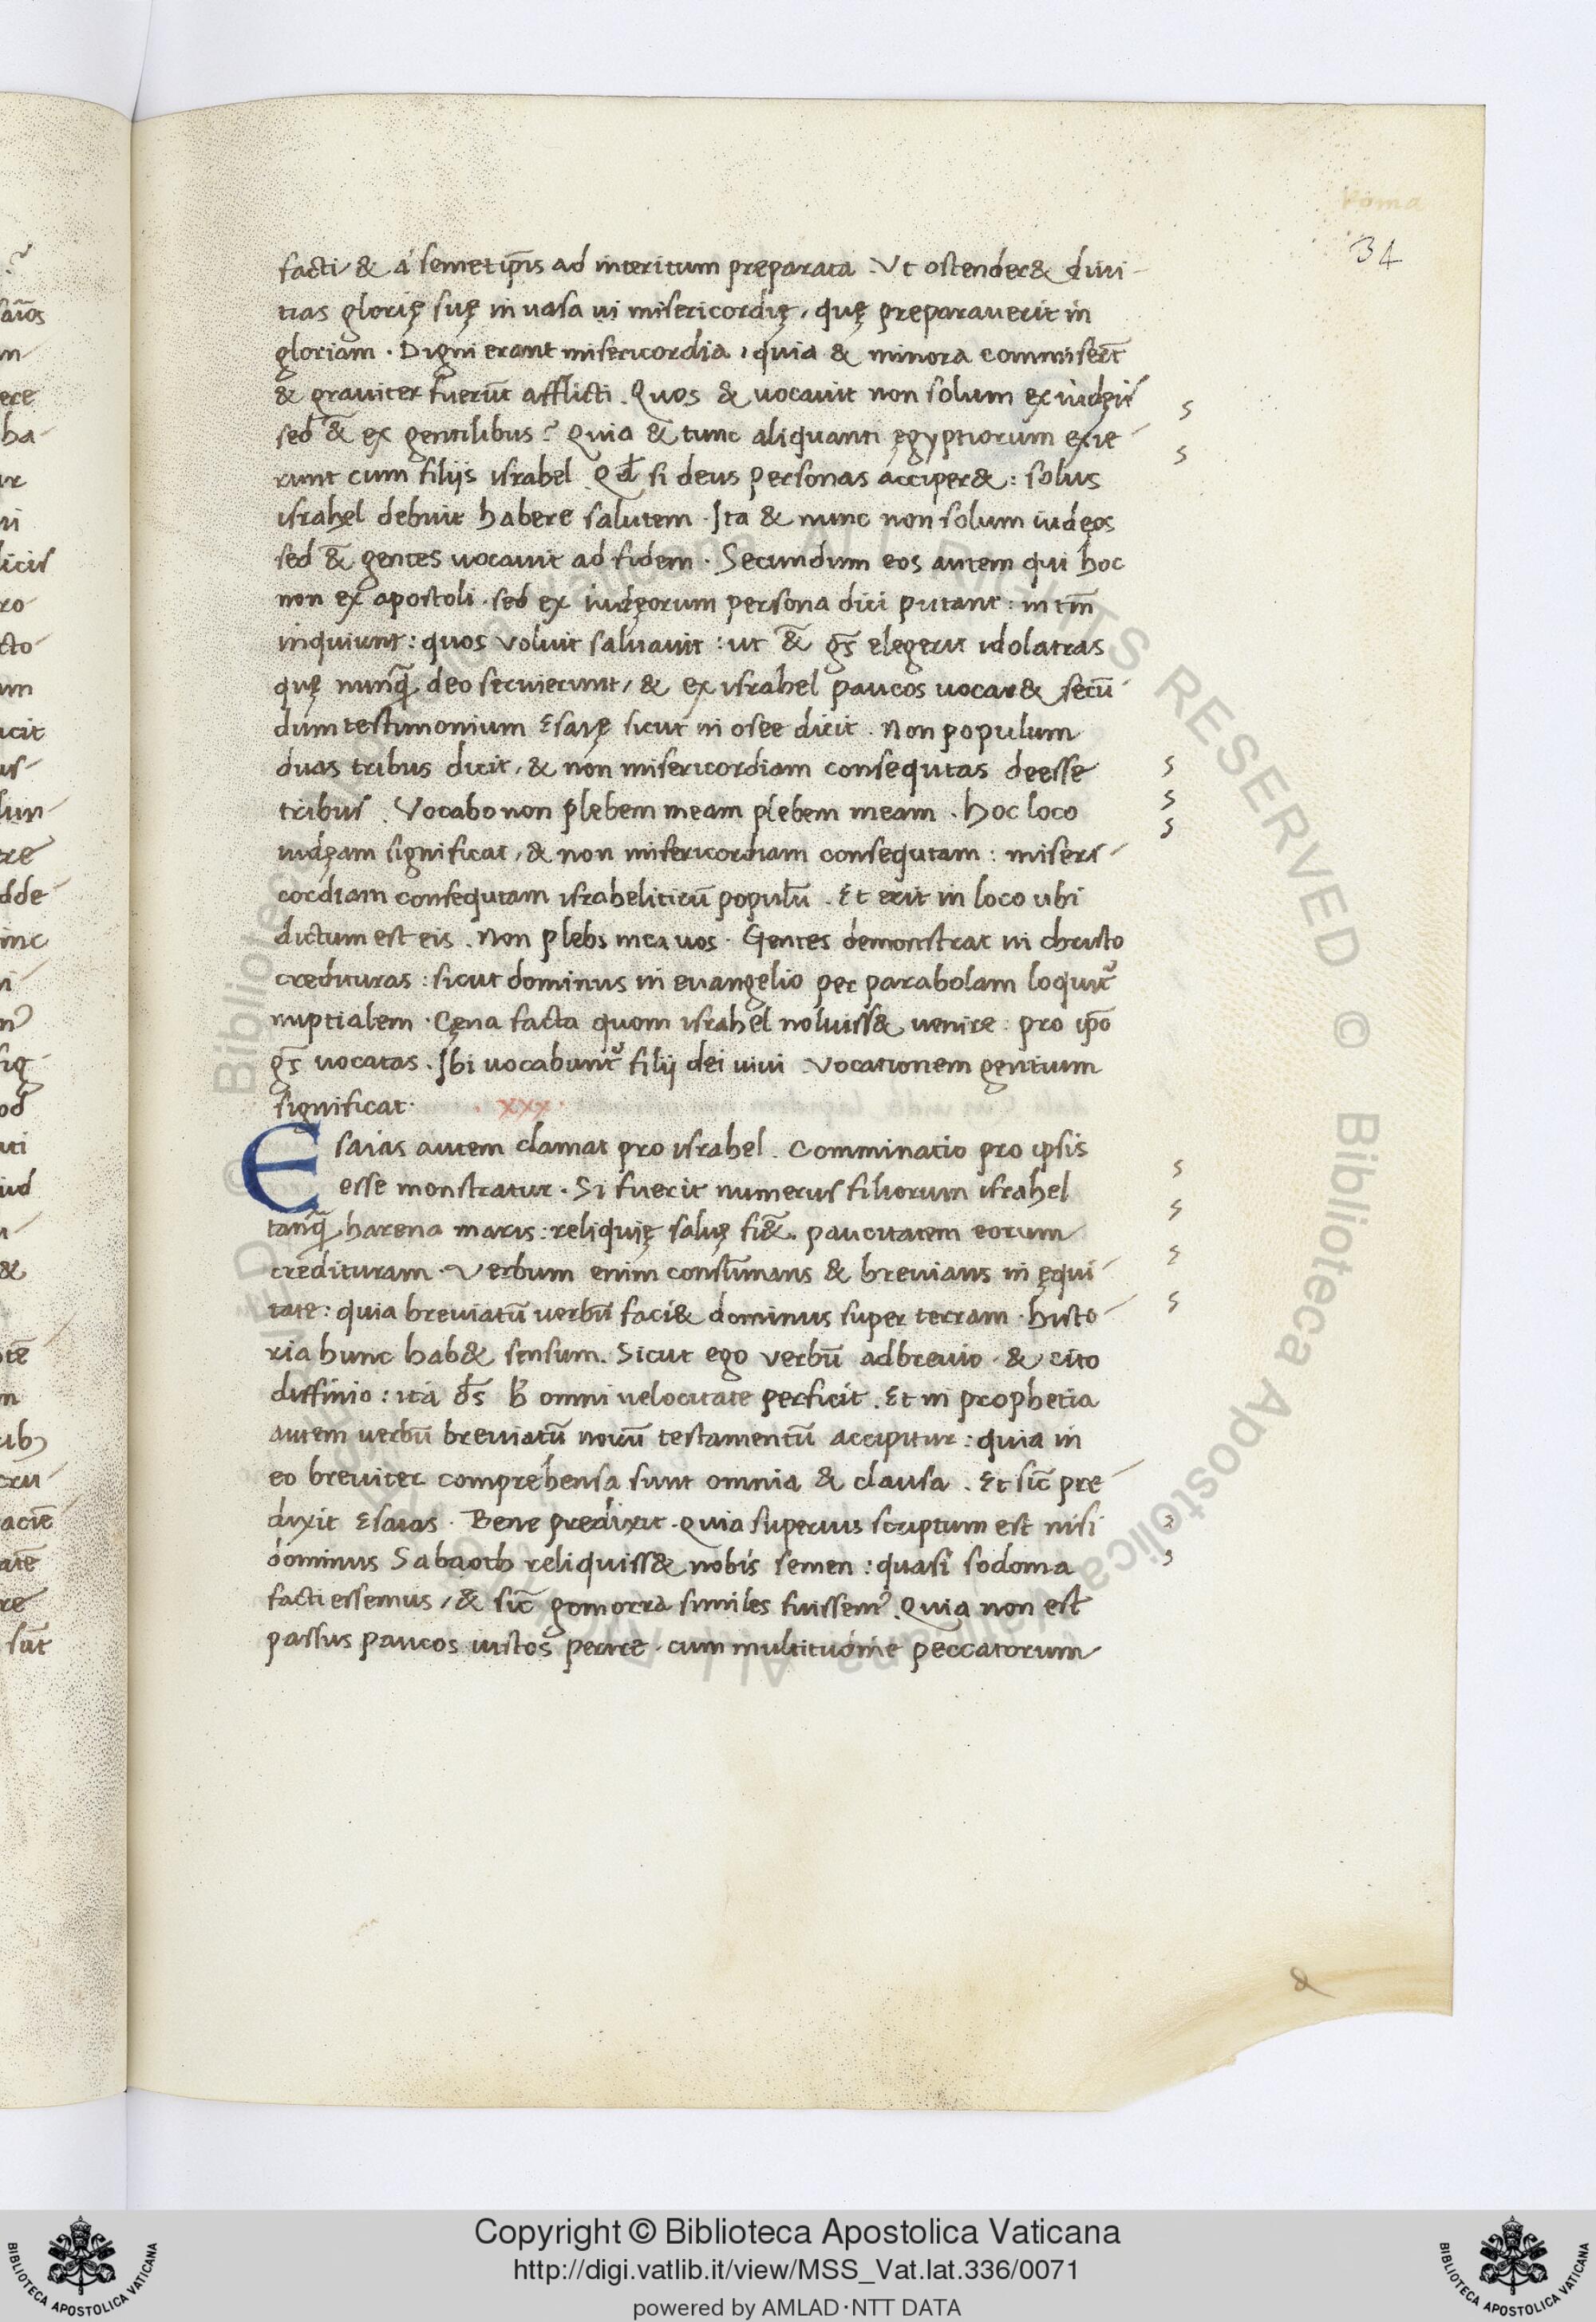 34
facti & a semetip̄is ad interitum preparata . Ut ostender& divi-
tias glorię suę in vasa ui misericordię, quę preparauerit in
gloriam . Digni erant misericordia, quia & minora commiser̄t
& graviter fuerūt afflicti . Quos & vocauit non solum ex iudęis
sed &̄ ex gentilibus ? Quia & tunc aliquanti ęgyptiorum exie-
runt cum filijs israhel . Qđ si deus personas acciper& : solus
israhel debuit habere salutem . Ita & nunc non solum iudęos
sed &̄ gentes uocauit ad fidem . Secundum eos autem qui hoc
non ex apostoli . sed ex iudęorum persona dici putant : in tm̄
inquiunt : quos voluit saluauit : ut &̄ gs̄ elegerit idolatras
quę nunq̄ deo seruierunt, & ex israhel paucos uocar& secū
dum testimonium Esaię sicut in osee dicit . Non populum
duas tribus dicit, & non misericordiam consequtas deesse
tribus . Vocabo non plebem meam plebem meam . hoc loco
iudęam significat, & non misericordiam consequtam : miseri-
cordiam consequtam israheliticū populū . Et erit in loco ubi
dictum est eis . Non plebs mea uos . Gentes demonstrat in christo
credituras : sicut dominus in euangelio per parabolam loquit᷑
nuptialem . Cęna facta quom israhel noluiss& uenire : pro ip̄o
gs̄ uocatas . Ibi uocabunt᷑ filij dei uiui . Vocationem gentium
significat . . xxx .
Esaias autem clamat pro israhel . Comminatio pro ipsis
esse monstratur . Si fuerit numerus filiorum israhel
tanq̄ harena maris : reliquię saluę fi&̄ . paucitatem eorum
credituram . Verbum enim consūmans & brevians in ęqui-
tate : quia breviatū verbū faci& dominus super terram . histo-
ria hunc hab& sensum . Sicut ego verbū adbrevio . & cito
diffinio : ita ds̄ h̄ omni velocitate perficit . Et in prophetia
autem uerbū breviatū novū testamentū accipitur : quia in
eo breviter comprehensa sunt omnia & clausa . Et sic̄ pre-
dixit Esaias . Bene predixit . Quia superius scriptum est nisi
dominus Sabaoth reliquiss& nobis semen : quasi sodoma
facti essemus, & sic̄ gomorra similes fuissem᷒ . Quia non est
passus paucos iustos perire . cum multitudine peccatorum
Copyright © Biblioteca Apostolica Vaticana
http://digi.vatlib.it/view/MSS_Vat.lat.336/0071
powered by AMLAD·NTT DATA